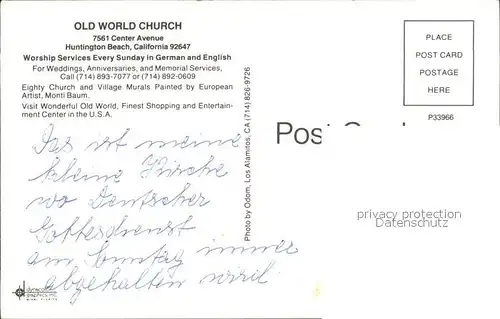 OLD WORLD CHURCH
7561 Center Avenue
Huntington Beach, California 92647
Worship Services Every Sunday in German and English
For Weddings, Anniversaries, and Memorial Services,
Call (714) 893-7077 or (714) 892-0609
Eighty Church and Village Murals Painted by European
Artist, Monti Baum.
Visit Wonderful Old World, Finest Shopping and Entertain-
ment Center in the U.S.A.
Das ist meine
kleine Kirche
wo Deutscher
Gottesdienst
am Sonntag immer
abgehalten wird
Photo by Odom, Los Alamitos, CA (714) 826-9726
PLACE
POST CARD
POSTAGE
HERE
P33966
privacy protection
Datenschutz